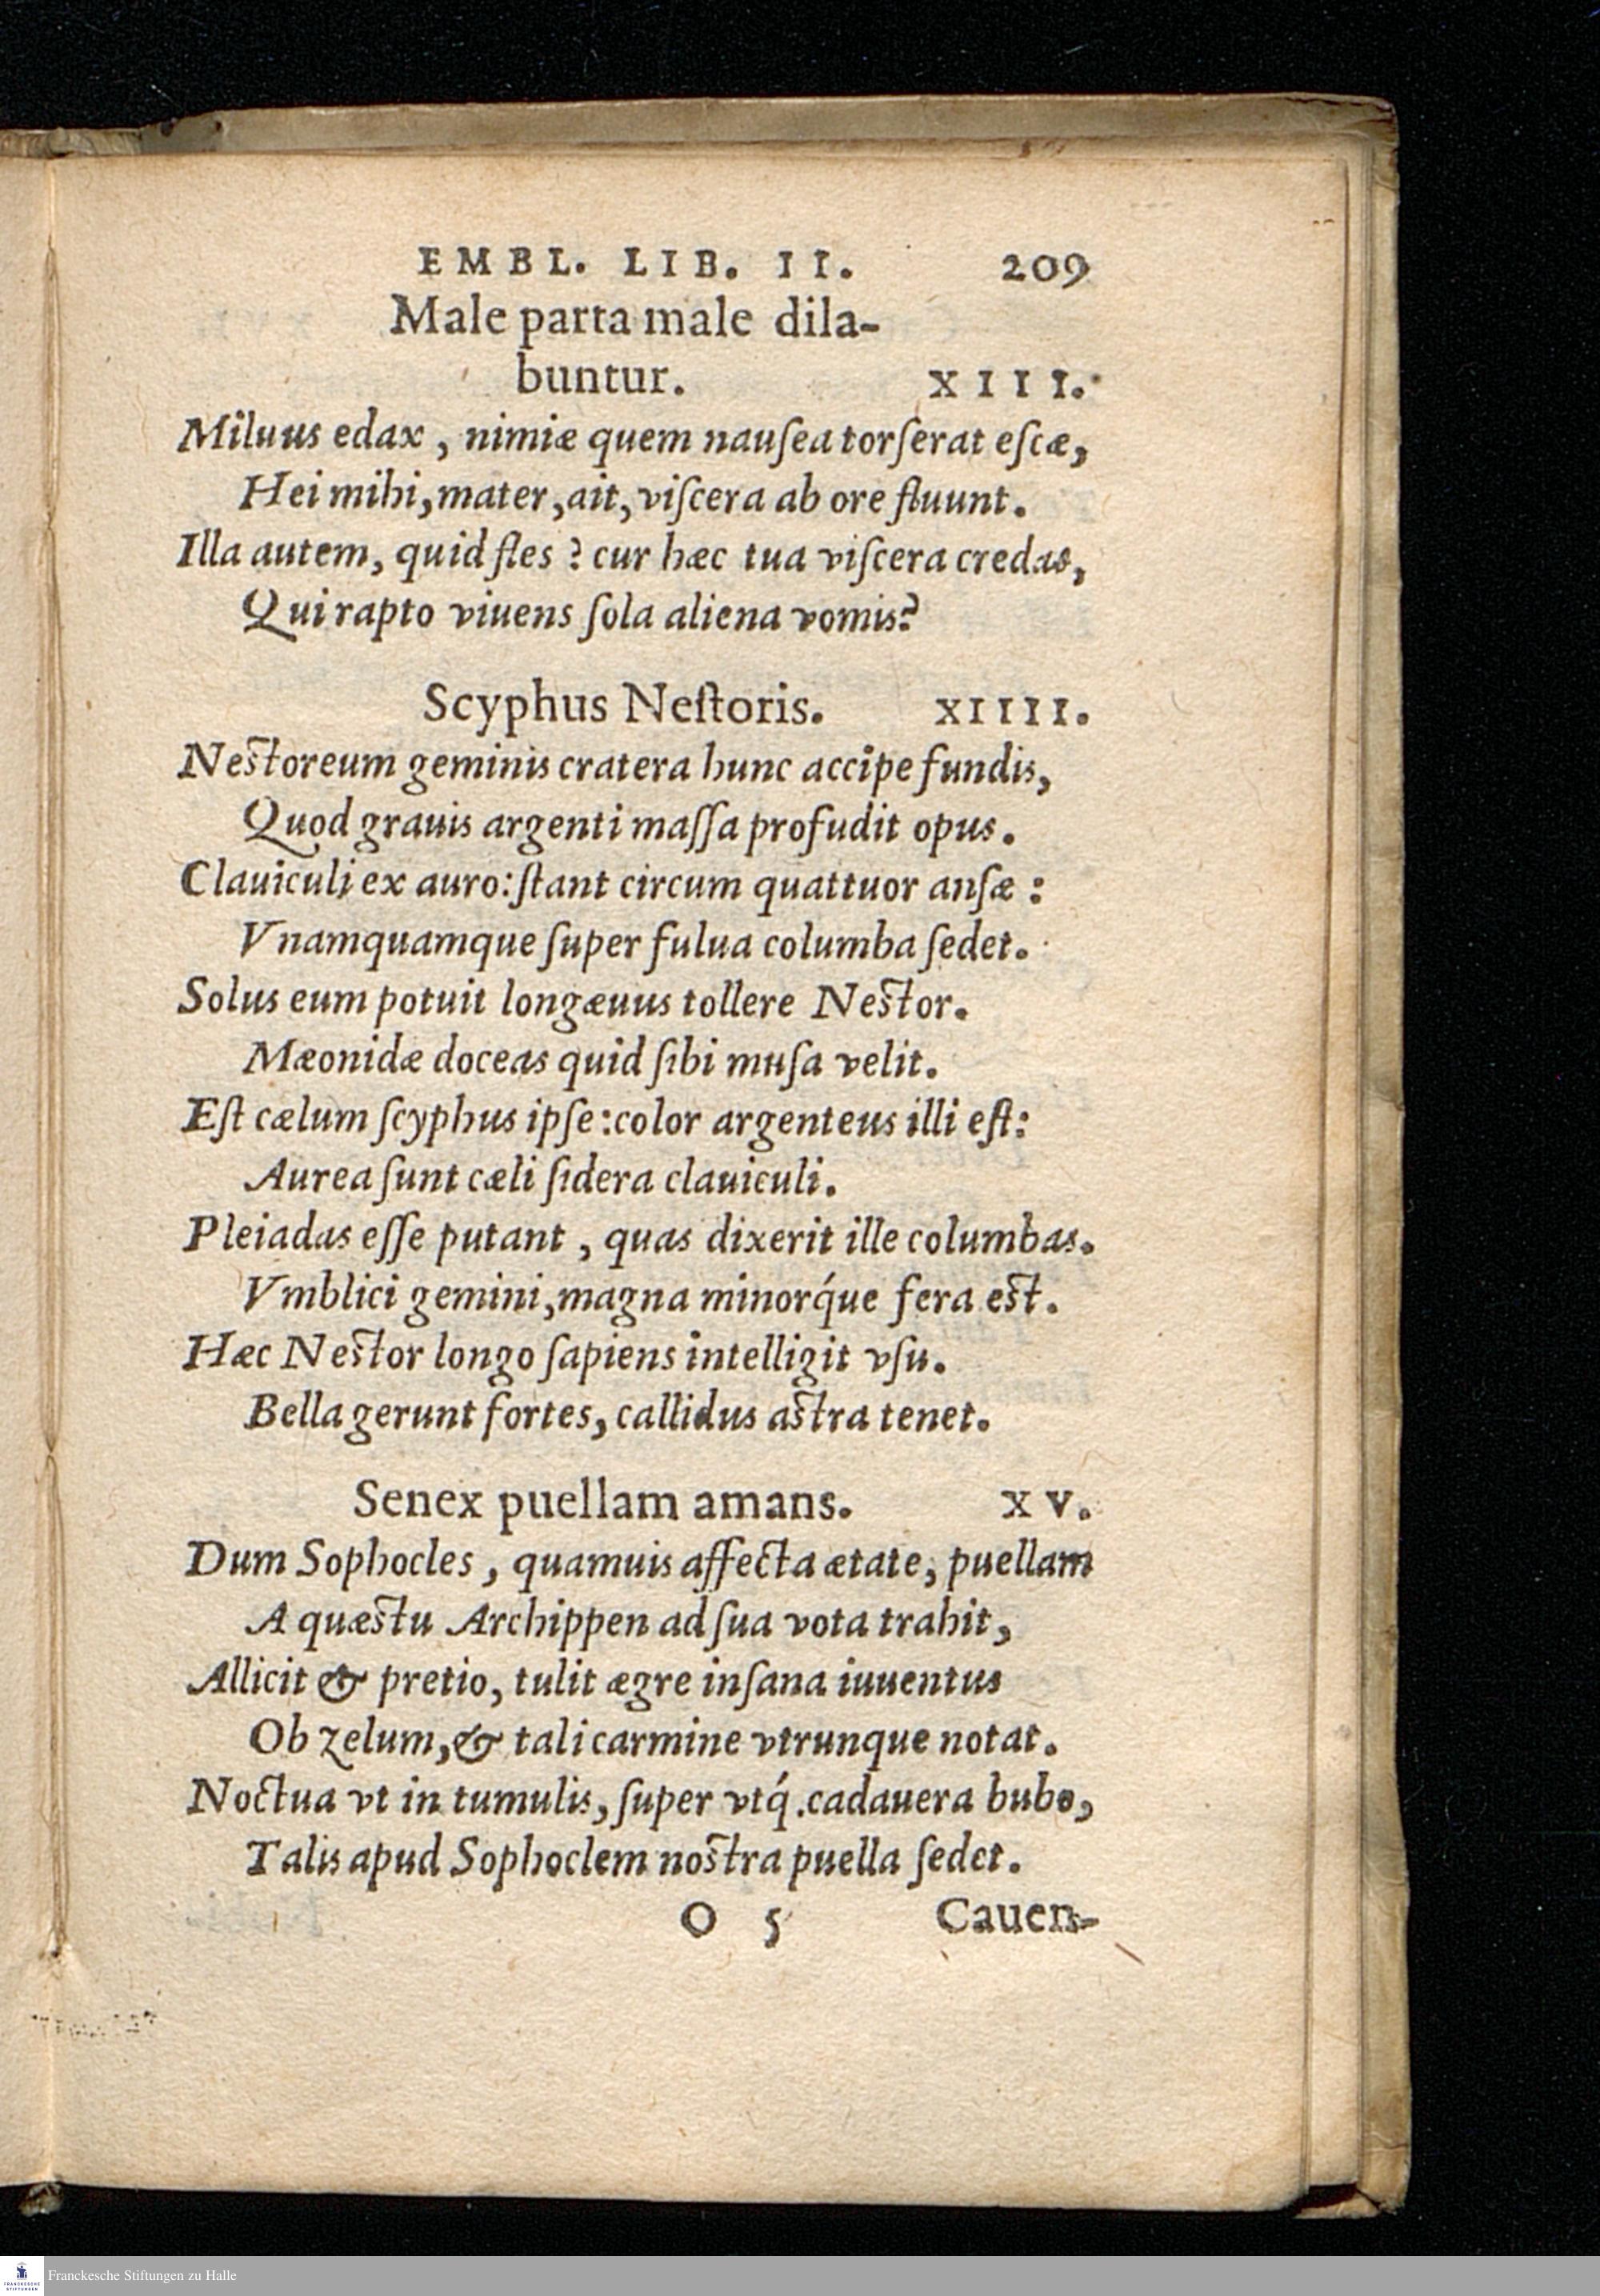 EMBL. LIB. II. 209
Male parta male dila-
buntur. XIII.
Miluus edax, nimiæ quem nauſea torſerat eſcæ,
Hei mihi, mater, ait, viſcera ab ore fluunt.
Illa autem, quid fles? cur hæc tua viſcera credas,
Qui rapto viuens ſola aliena vomis?
Scyphus Neſtoris. XIIII.
Neſtoreum geminis cratera hunc accipe fundis,
Quod grauis argenti maſſa profudit opus.
Clauiculi ex auro: ſtant circum quattuor anſæ:
Vnamquamque ſuper fulua columba ſedet.
Solus eum potuit longæuus tollere Neſtor.
Mæonidæ doceas quid ſibi muſa velit.
Eſt cælum ſcyphus ipſe: color argenteus illi eſt:
Aurea ſunt cæli ſidera clauiculi.
Pleiadas eſſe putant, quas dixerit ille columbas.
Vmblici gemini, magna minorq́ue fera eſt.
Hæc Neſtor longo ſapiens intelligit vſu.
Bella gerunt fortes, callidus aſtra tenet.
Senex puellam amans. XV.
Dum Sophocles, quamuis affecta ætate, puellam
A quæſtu Archippen ad ſua vota trahit,
Allicit & pretio, tulit ægre inſana iuuentus
Ob zelum, & tali carmine vtrunque notat.
Noctua vt in tumulis, ſuper vtq́. cadauera bubo,
Talis apud Sophoclem noſtra puella ſedet.
O 5 Cauen-
FRANCKESCHE STIFTUNGEN
Franckesche Stiftungen zu Halle